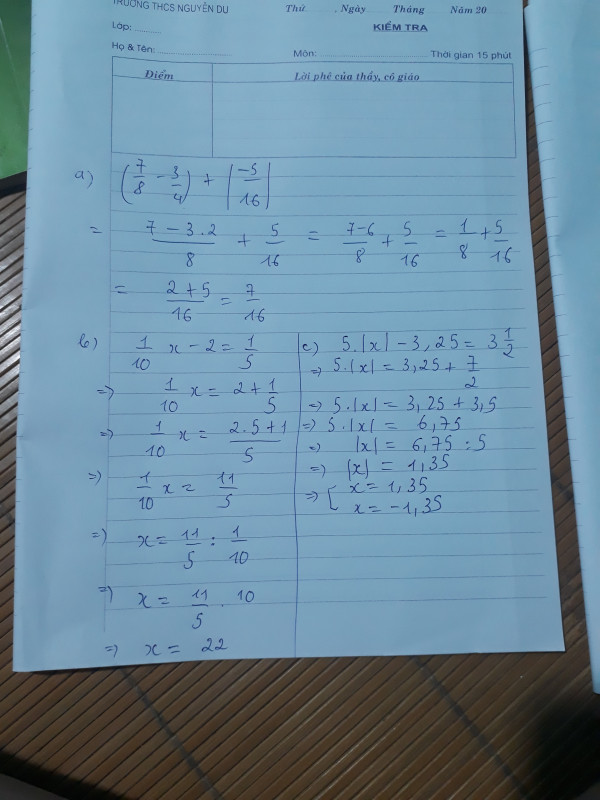 TRƯỜNG THCS NGUYỄN DU
Thứ ........ Ngày Tháng Năm 20
Lớp: ........
KIỂM TRA
Họ & Tên: ........................
Môn: ........................ Thời gian 15 phút
Điểm
Lời phê của thầy, cô giáo
a) (7/8 - 3/4) + |-5/16|
= (7 - 3.2)/8 + 5/16 = (7-6)/8 + 5/16 = 1/8 + 5/16
= (2+5)/16 = 7/16
b) 1/10 x - 2 = 1/5
=> 1/10 x = 2 + 1/5
=> 1/10 x = (2.5+1)/5
=> 1/10 x = 11/5
=> x = 11/5 : 1/10
=> x = 11/5 . 10
=> x = 22
c) 5.|x| - 3,25 = 3 1/2
=> 5.|x| = 3,25 + 7/2
=> 5.|x| = 3,25 + 3,5
=> 5.|x| = 6,75
=> |x| = 6,75 : 5
=> |x| = 1,35
=> [ x = 1,35
x = -1,35